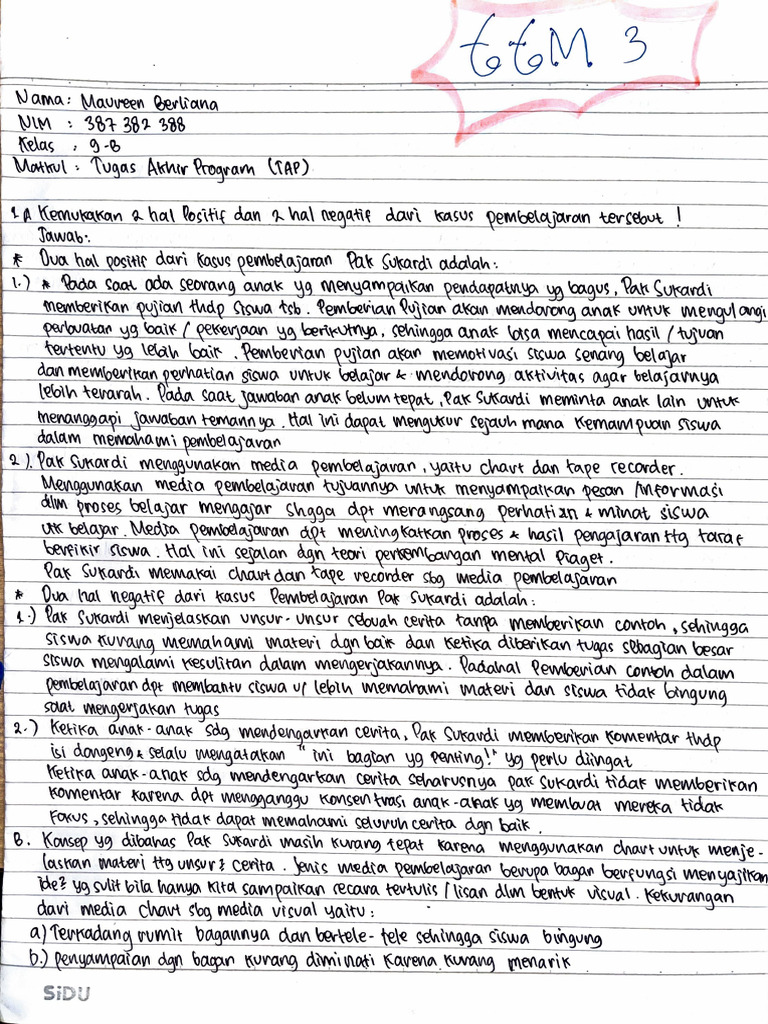 TTM 3
Nama : Maureen Berliana
NIM : 387 382 388
Kelas : 9-B
Matkul : Tugas Akhir Program (TAP)
1. A Kemukakan 2 hal Positif dan 2 hal negatif dari kasus pembelajaran tersebut !
Jawab:
* Dua hal positif dari kasus pembelajaran Pak Sukardi adalah :
1.) * Pada saat ada seorang anak yg menyampaikan pendapatnya yg bagus, Pak Sukardi
memberikan pujian thdp siswa tsb. Pemberian Pujian akan mendorong anak untuk mengulangi
perbuatan yg baik / pekerjaan yg berikutnya, sehingga anak bisa mencapai hasil / tujuan
tertentu yg lebih baik. Pemberian pujian akan memotivasi siswa senang belajar
dan memberikan perhatian siswa untuk belajar & mendorong aktivitas agar belajarnya
lebih terarah. Pada saat jawaban anak belum tepat, Pak Sukardi meminta anak lain untuk
menanggapi jawaban temannya. Hal ini dapat mengukur sejauh mana kemampuan siswa
dalam memahami pembelajaran
2.) Pak Sukardi menggunakan media pembelajaran, yaitu chart dan tape recorder.
Menggunakan media pembelajaran tujuannya untuk menyampaikan pesan /informasi
dlm proses belajar mengajar shgga dpt merangsang perhatian & minat siswa
utk belajar. Media pembelajaran dpt meningkatkan proses & hasil pengajaran ttg taraf
berfikir siswa. Hal ini sejalan dgn teori perkembangan mental Piaget.
Pak Sukardi memakai chart dan tape recorder sbg media pembelajaran
* Dua hal negatif dari kasus Pembelajaran Pak Sukardi adalah :
1.) Pak Sukardi menjelaskan unsur-unsur sebuah cerita tanpa memberikan contoh, sehingga
siswa kurang memahami materi dgn baik dan ketika diberikan tugas sebagian besar
siswa mengalami kesulitan dalam mengerjakannya. Padahal Pemberian contoh dalam
pembelajaran dpt membantu siswa u/ lebih memahami materi dan siswa tidak bingung
saat mengerjakan tugas
2.) Ketika anak-anak sdg mendengarkan cerita, Pak Sukardi memberikan komentar thdp
isi dongeng & selalu mengatakan " ini bagian yg penting!" yg perlu diingat
Ketika anak-anak sdg mendengarkan cerita seharusnya pak Sukardi tidak memberikan
komentar karena dpt mengganggu konsentrasi anak-anak yg membuat mereka tidak
Fokus, sehingga tidak dapat memahami seluruh cerita dgn baik.
B. Konsep yg dibahas Pak Sukardi masih kurang tepat karena menggunakan chart untuk menje-
laskan materi ttg unsur2 cerita. Jenis media pembelajaran berupa bagan berfungsi menyajikan
ide2 yg sulit bila hanya kita sampaikan secara tertulis / lisan dlm bentuk visual. Kekurangan
dari media chart sbg media visual yaitu :
a) Terkadang rumit bagannya dan bertele-tele sehingga siswa bingung
b.) penyampaian dgn bagan kurang diminati karena kurang menarik
SiDU